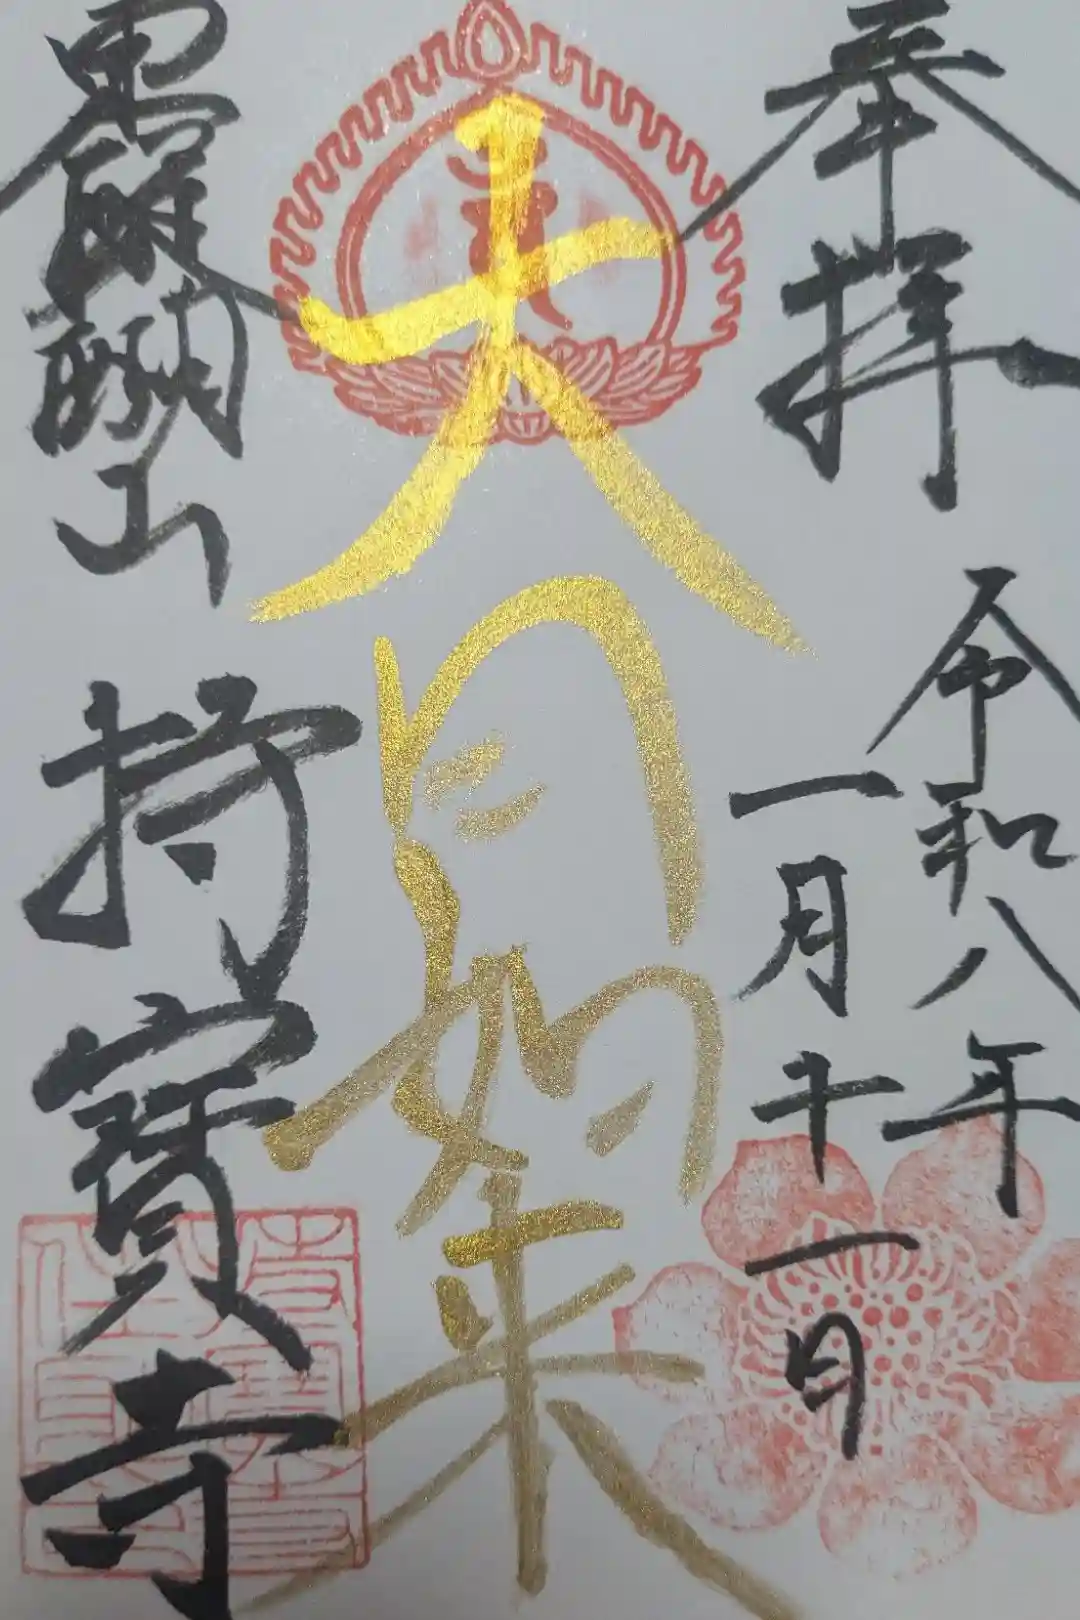 奉拝
令和八年
一月十一日
大日如来
醍醐山
持寳寺